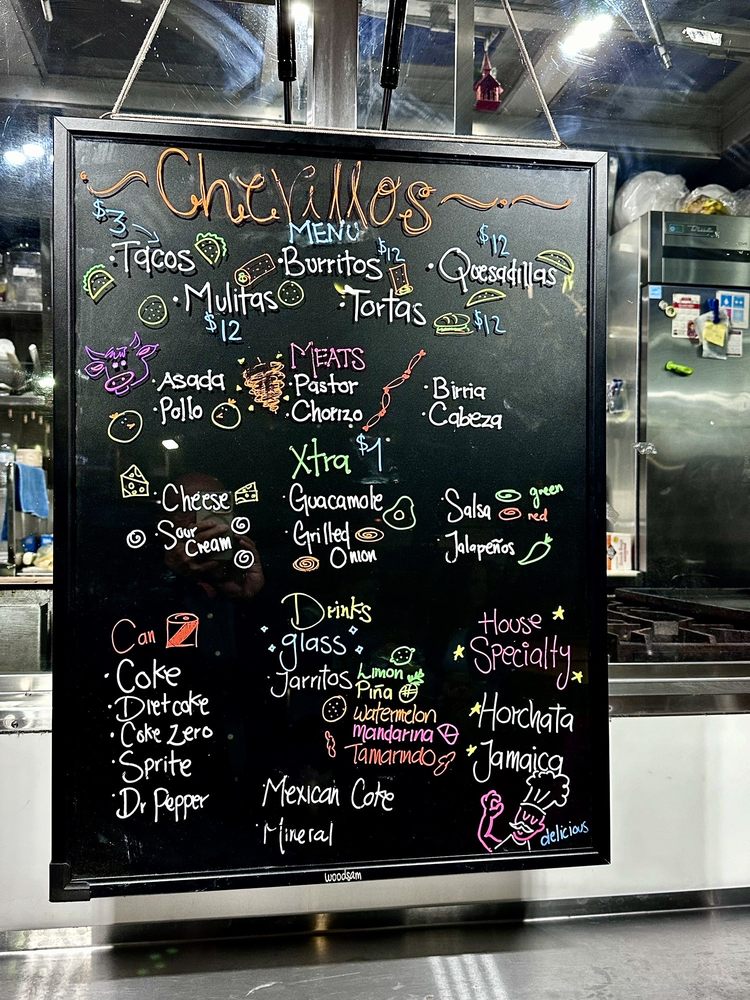 Chevillos
MENU
$3
· Tacos
· Burritos $12
· Quesadillas $12
· Mulitas $12
· Tortas $12
MEATS
· Asada
· Pastor
· Birria
· Pollo
· Chorizo
· Cabeza
Xtra $1
· Cheese
· Guacamole
· Salsa green red
· Sour Cream
· Grilled Onion
· Jalapeños
Can
· Coke
· Diet cake
· Coke Zero
· Sprite
· Dr Pepper
Drinks
glass
· Jarritos Limon
Piña
watermelon
mandarina
Tamarindo
· Mexican Coke
· Mineral
House
Specialty
Horchata
Jamaica
delicious
woodsam